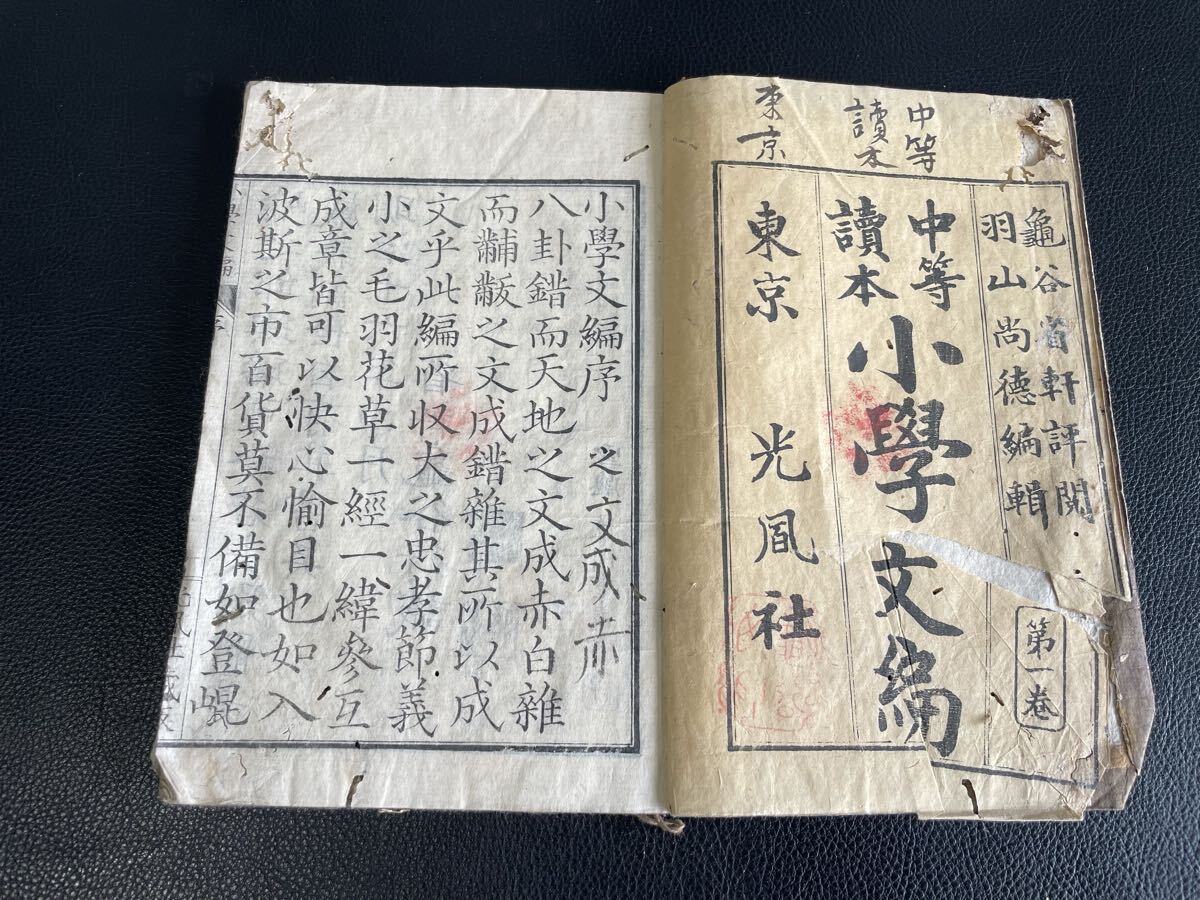 中等
讀本
東京
龜谷省軒評閲
羽山尚德編輯
第一卷
中等
讀本
小學文編
東京 光風社
小學文編序 之文成赤
八卦錯而天地之文成赤白雜
而黼黻之文成錯雜其所以成
文乎此編所収大之忠孝節義
小之毛羽花草一經一緯參互
成章皆可以快心愉目也如入
波斯之市百貨莫不備如登崐